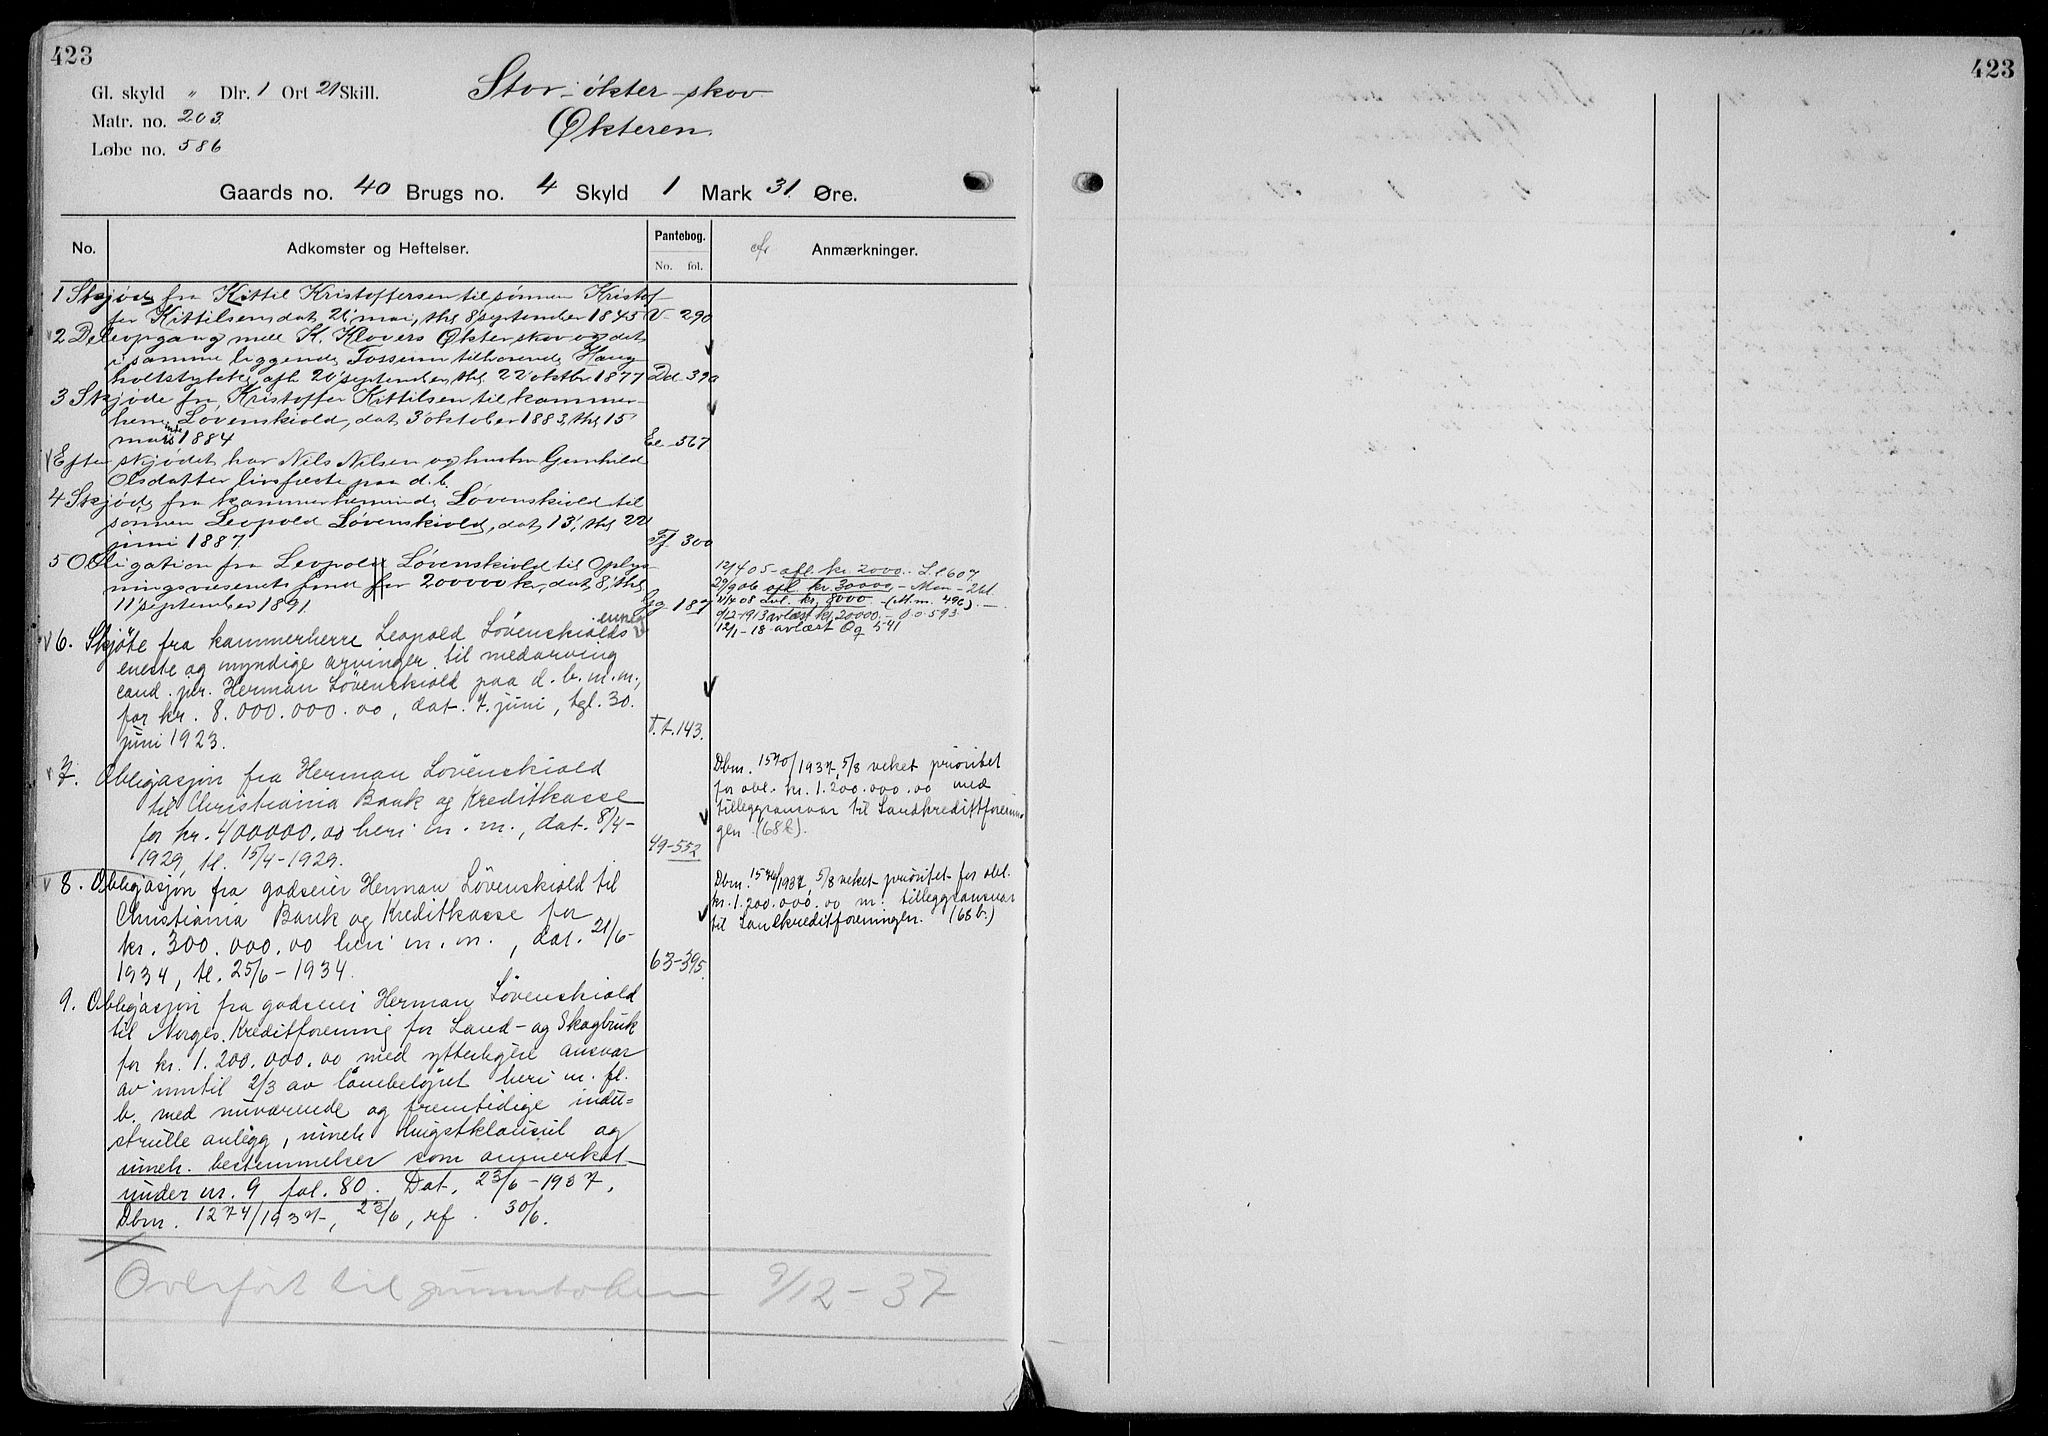 423
423
Gl. skyld " Dlr. 1 Ort 21 Skill.
Stor-økter-skov
Matr. no. 203
Økteren.
Løbe no. 586
Gaards no. 40 Brugs no. 4 Skyld 1 Mark 31 Øre.
No. Adkomster og Heftelser. Pantebog. Anmærkninger.
No. fol.
1 Skjøde fra Kittil Kristoffersen til sønnen Kristof-
fer Kittilsen, dat. 26 mai, thl. 8 september 1845 V 290
2 Deleopgang mell. K. Klovers Økterskov og det
i samme liggende Fossum tilhørende Haug-
holtstykke, afh. 20 september, thl. 22 oktbr 1877 Dd 390
3 Skjøde fra Kristoffer Kittilsen til kammer-
herre Løvenskiold, dat. 3 oktober 1883, thl. 15
marts 1884 Ee 567
Efter skjødet har Nils Nilsen og hustru Gunhild
Olsdatter livsfæste paa d. b.
4 Skjøde fra kammerherreinde Løvenskiold til
sønnen Leopold Løvenskiold, dat. 13, thl. 22
juni 1887. Ff 300
5 Obligation fra Leopold Løvenskiold til Oplys-
ningsvæsenets fond for 200000 kr, dat. 8, thl.
11 september 1891. Gg 187
12/4 05 - afl. kr. 2000. - Ll 607
29/9 06 afl. kr. 30000 -
11/4 08 kr. 8000 - (M.m. 496). -
9/12-1913 avlæst kr. 20000. - Oo 593
12/1-18 avlæst Qq 541
6. Skjöte fra kammerherre Leopold Lövenskiolds
eneste og myndige arvinger til medarving
cand. jur. Herman Lövenskiold paa d. b. m. m.,
for kr. 8.000.000.00, dat. 7. juni, tgl. 30.
juni 1923. T. t. 143.
7. Obligasjon fra Herman Lövenskiold
til Christiania Bank og Kreditkasse
for kr. 400000.00 heri m. m., dat. 8/4-
1929, tl. 15/4-1929. 49-552
Dbnr. 1570/1937, 5/8 veket prioritet
for obl. kr. 1.200.000.00 med
tilleggsansvar til Landkreditforenin-
gen. (68b).
8. Obligasjon fra godseier Herman Lövenskiold til
Christiania Bank og Kreditkasse for
kr. 300.000.00 heri m. m., dat. 21/6-
1934, tl. 25/6-1934. 63-395.
Dbnr. 1570/1937, 5/8 veket prioritet for obl.
kr. 1.200.000.00 m. tilleggsansvar
til Landkreditforeningen. (68b.)
9. Obligasjon fra godseier Herman Lövenskiold
til Norges Kreditforening for Land- og Skogbruk
for kr. 1.200.000.00 med ytterligere ansvar
av inntil 2/3 av lånebelöpet heri m. fl.
b. med nuværende og fremtidige indu-
strielle anlegg, inneh. hugstklausul og
inneh. bestemmelser som anmerket
under nr. 9 fol. 80. Dat. 23/6-1937,
Dbnr. 1274/1937, 23/6, rf. 30/6.
Overfört til grunnboken 9/12-37